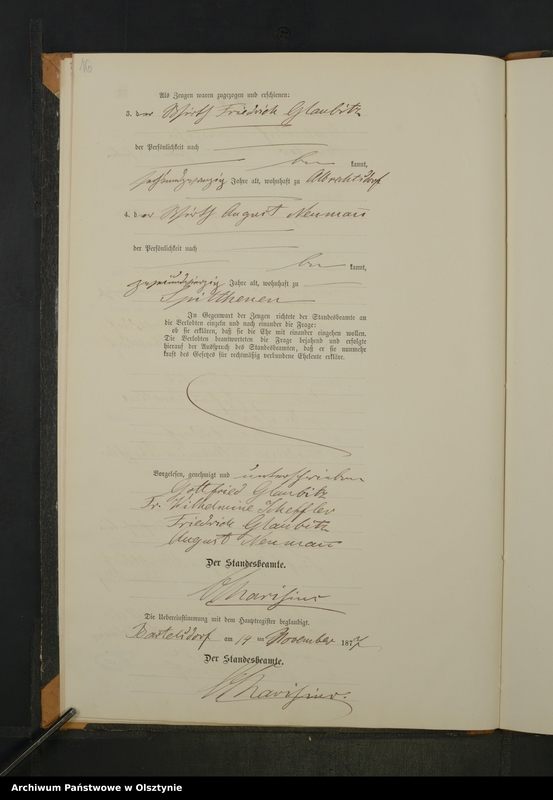 Als Zeugen waren zugezogen und erschienen:
3. der Wirth Friedrich Glaubitz
der Persönlichkeit nach
be kannt,
Jahre alt, wohnhaft zu Albrechtsdorf
4. der Wirth August Neumann
der Persönlichkeit nach
be kannt,
Jahre alt, wohnhaft zu
Spittehnen
In Gegenwart der Zeugen richtete der Standesbeamte an
die Verlobten einzeln und nach einander die Frage:
ob sie erklären, daß sie die Ehe mit einander eingehen wollen.
Die Verlobten beantworteten die Frage bejahend und erfolgte
hierauf der Ausspruch des Standesbeamten, daß er sie nunmehr
kraft des Gesetzes für rechtmäßig verbundene Eheleute erkläre.
Vorgelesen, genehmigt und unterschrieben
Gottfried Glaubitz
Fr. Wilhelmine Scheffler
Friedrich Glaubitz
August Neumann
Der Standesbeamte.
Charisius
Die Uebereinstimmung mit dem Hauptregister beglaubigt.
Bartelsdorf am 19 ten November 1877
Der Standesbeamte.
Charisius.
Archiwum Państwowe w Olsztynie